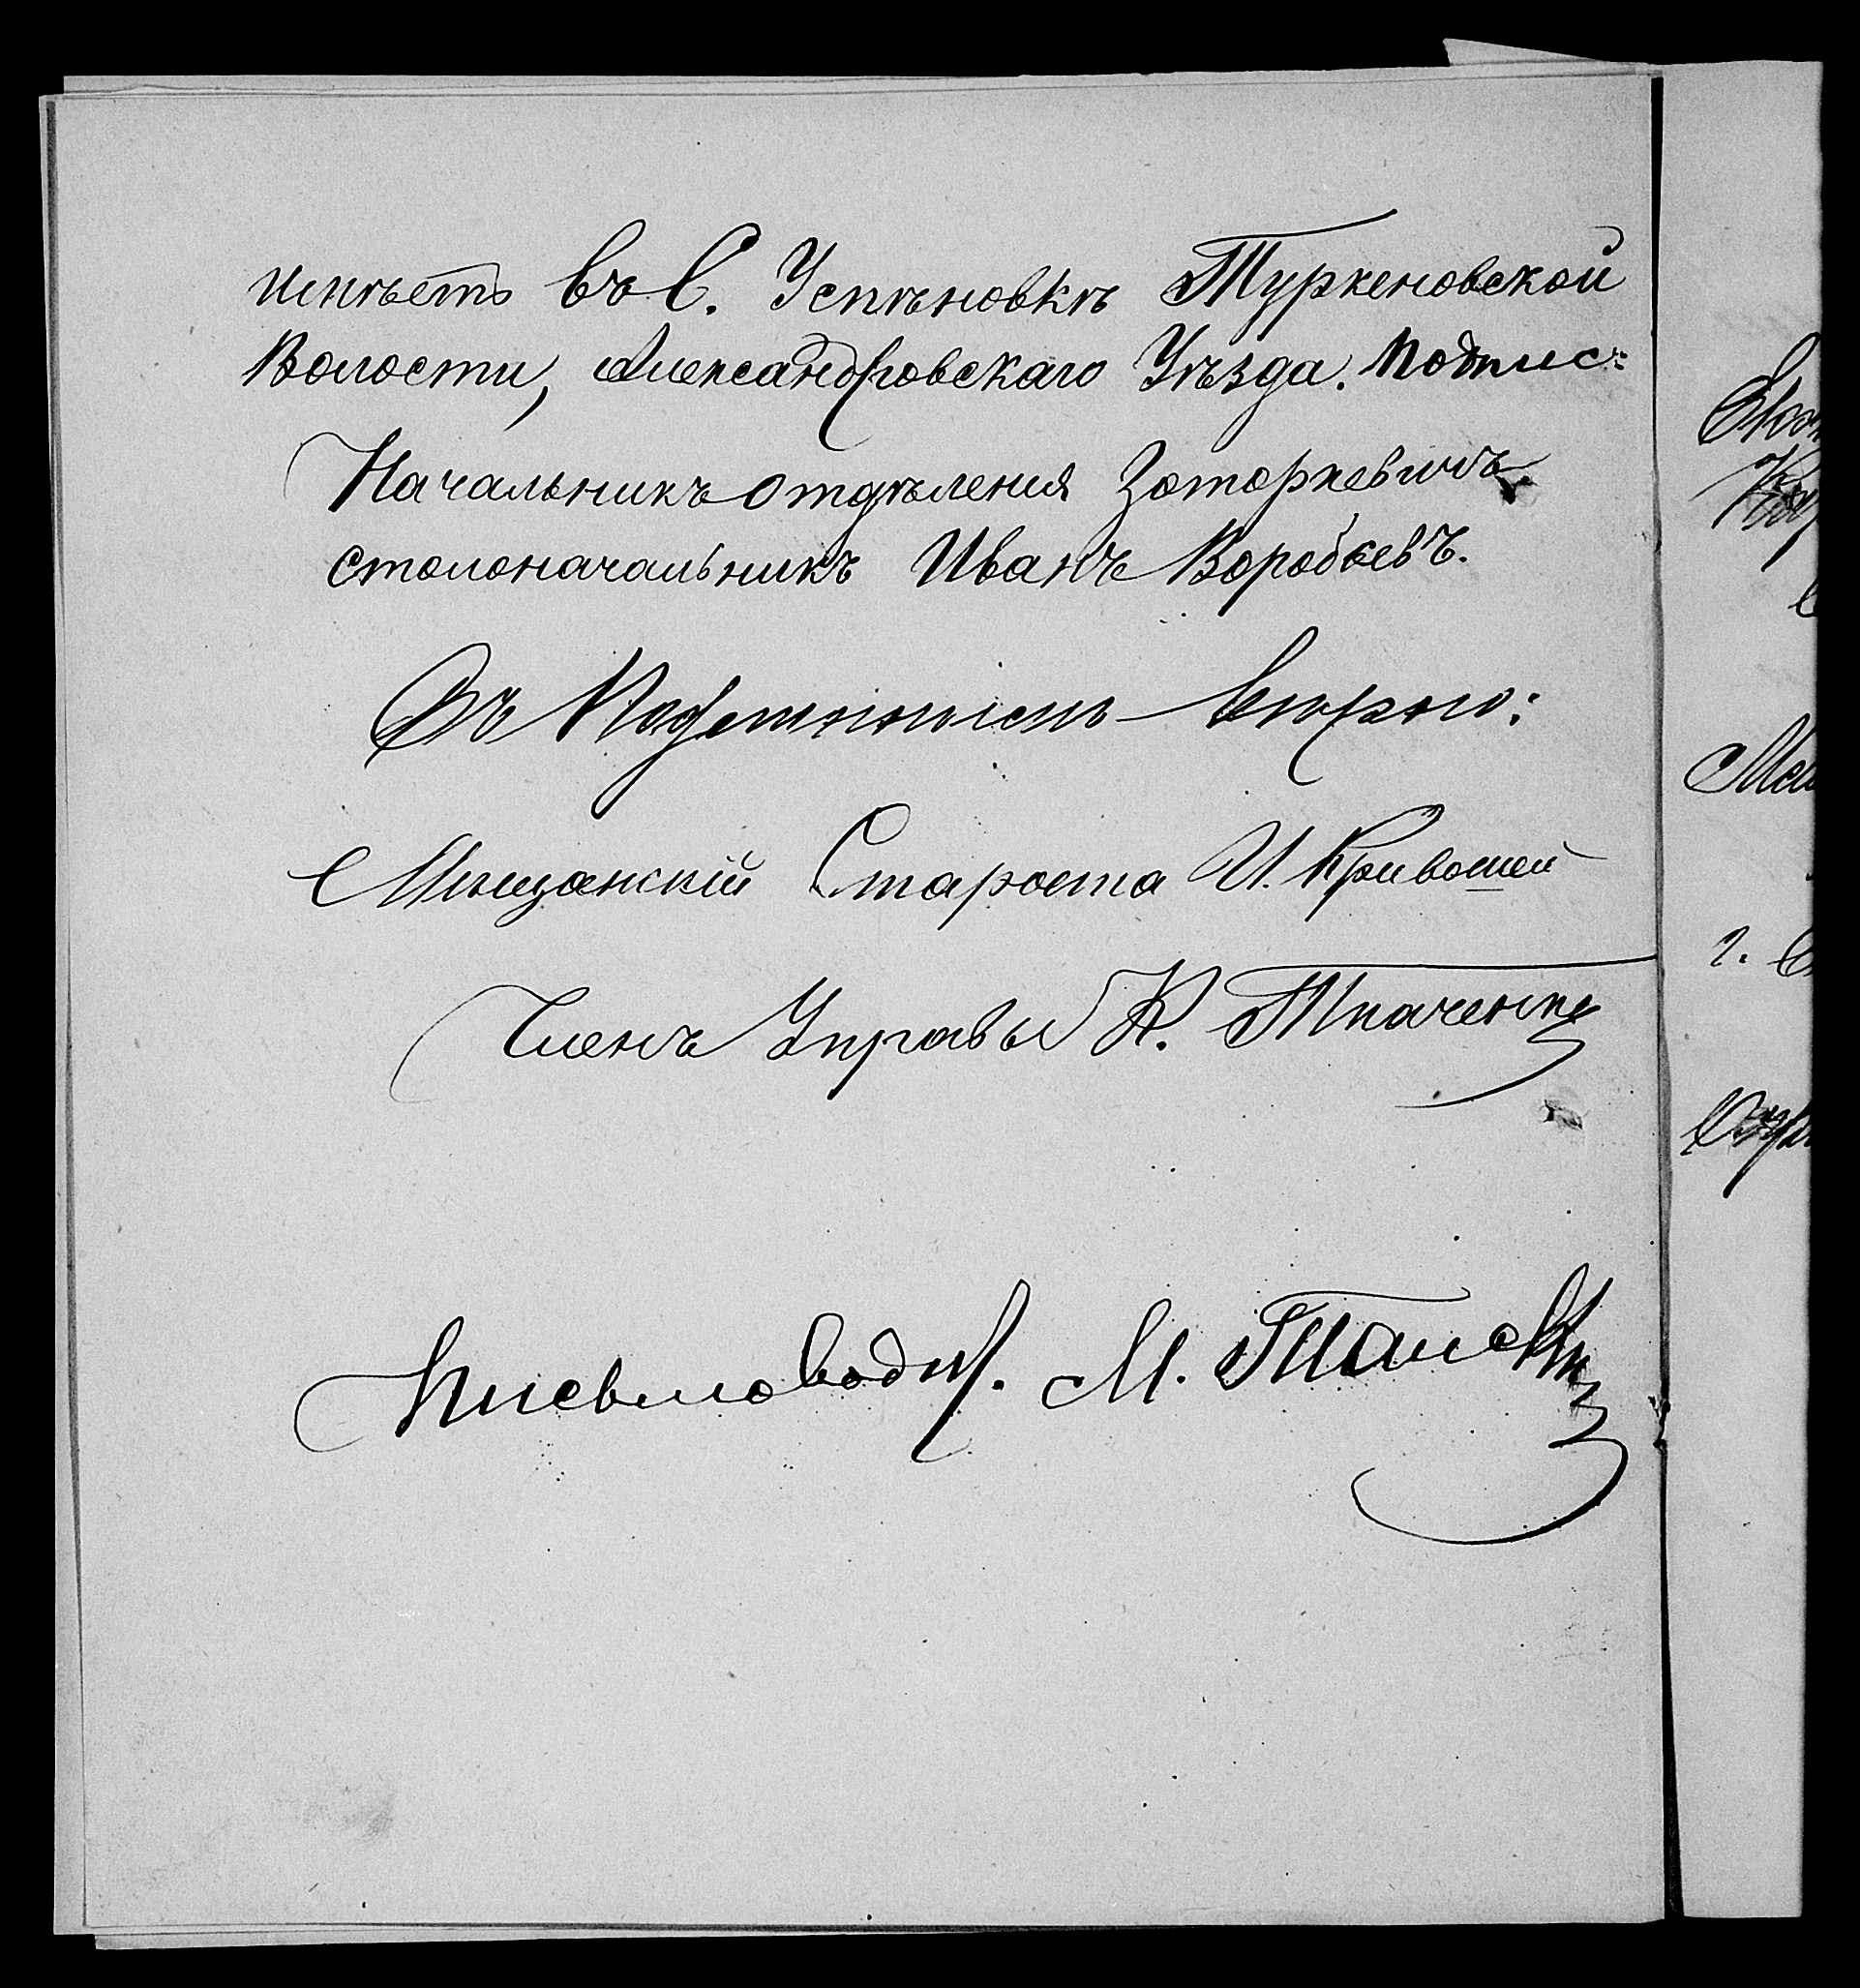 имѣетъ въ С. Успѣновкѣ Туркеновской
Волости, Александровскаго Уѣзда. Подпис:
Начальникъ отдѣленія Заторкевичъ
столоначальникъ Иванъ Воробьевъ.
Съ Подлиннымъ вѣрно:
Мѣщанскій Староста И. Кривошей
Членъ Управы К. Ткаченко
Письмоводит. М.